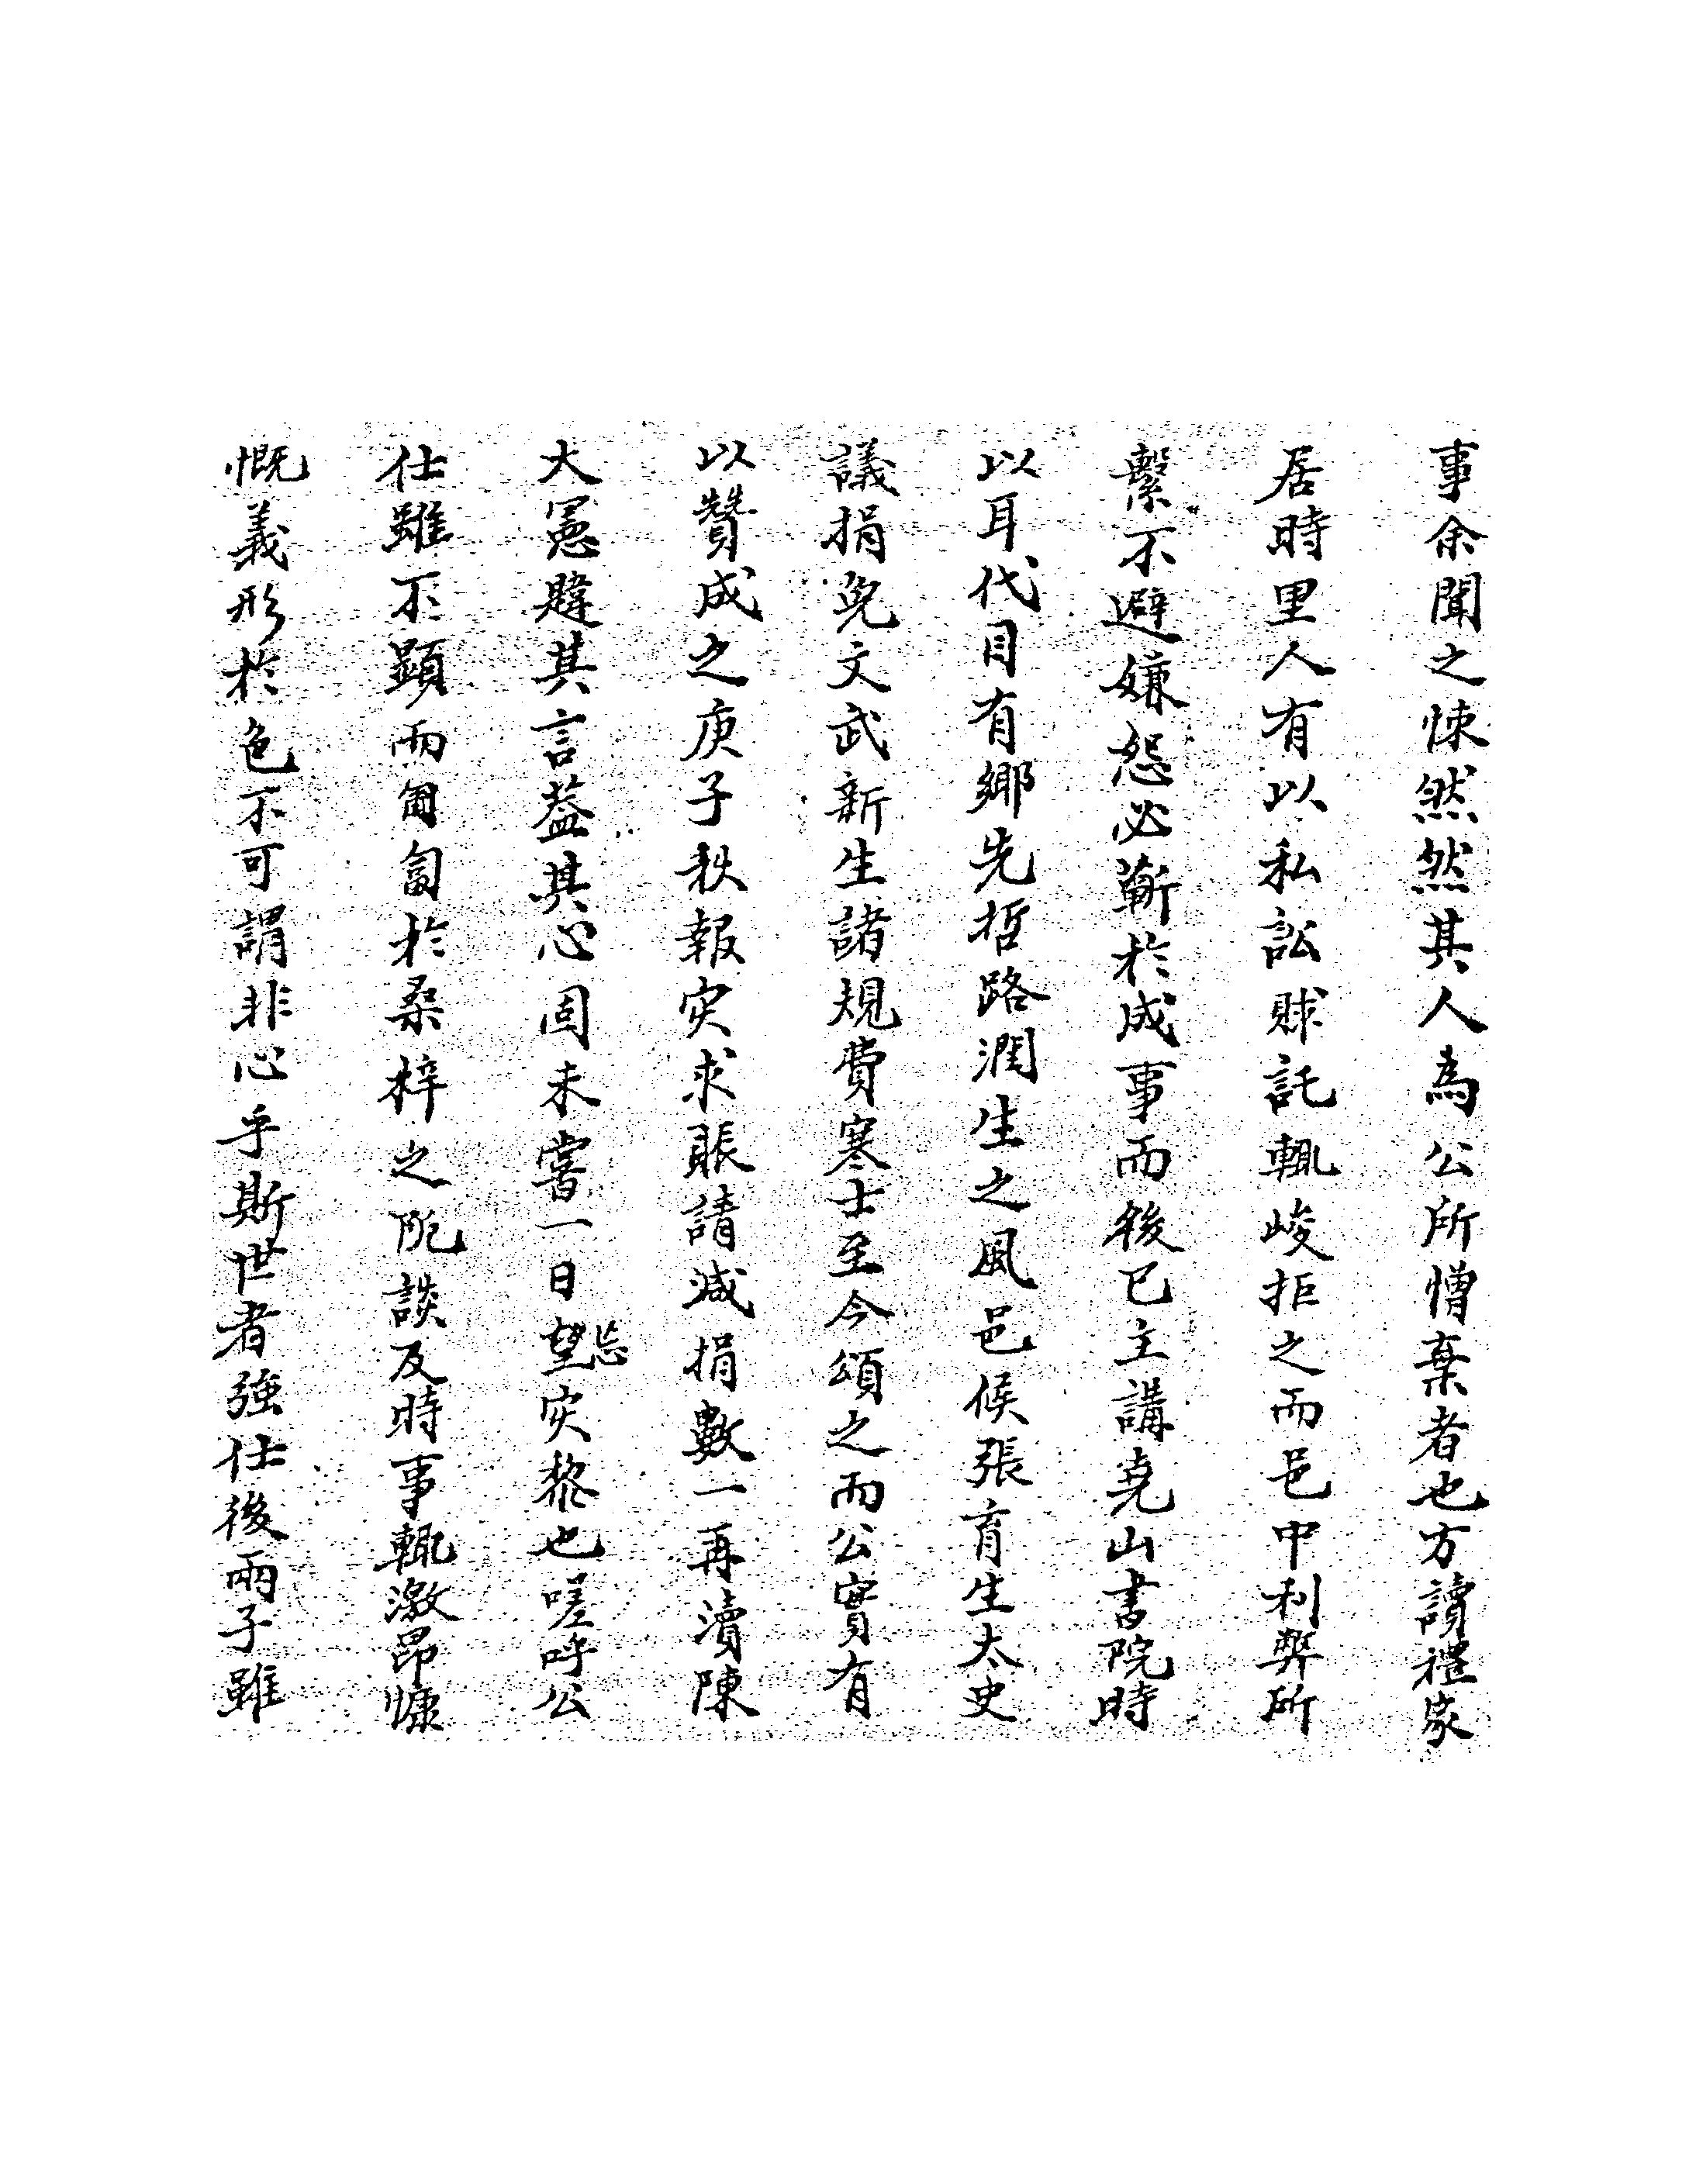 事余聞之悚然然其人為公所憎棄者也方讀禮家
居時里人有以私訟賕託輒峻拒之而邑中利弊所
繫不避嫌怨必蘄於成事而後已主講堯山書院時
以耳代目有鄉先哲路潤生之風邑侯張育生太史
議捐免文武新生諸規費寒士至今頌之而公實有
以贊成之庚子秋報灾求賑請減捐數一再瀆陳
大憲韙其言葢其心固未嘗一日望忘灾黎也嗟呼公
仕雖不顯而匍匐於桑梓之阨談及時事輒激昂慷
慨義形於色不可謂非心乎斯世者強仕後兩子雖